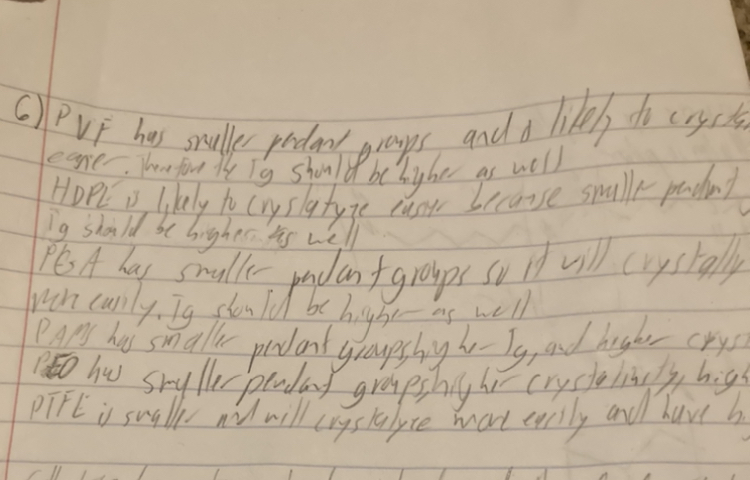 6) PVF has smaller pendant groups and is likely to crysta
easier. Therefore the Tg should be higher as well
HDPE is likely to crystalyze easier because smaller pendant
Tg should be higher as well
has smaller pendant groups so it will crystally
more easily. Tg should be higher as well
PAMS has smaller pendant groups, higher Tg, and higher crys
PEO has smaller pendant groups, higher crystalinity, high
PTFE is smaller and will crystalyze more easily and have hi